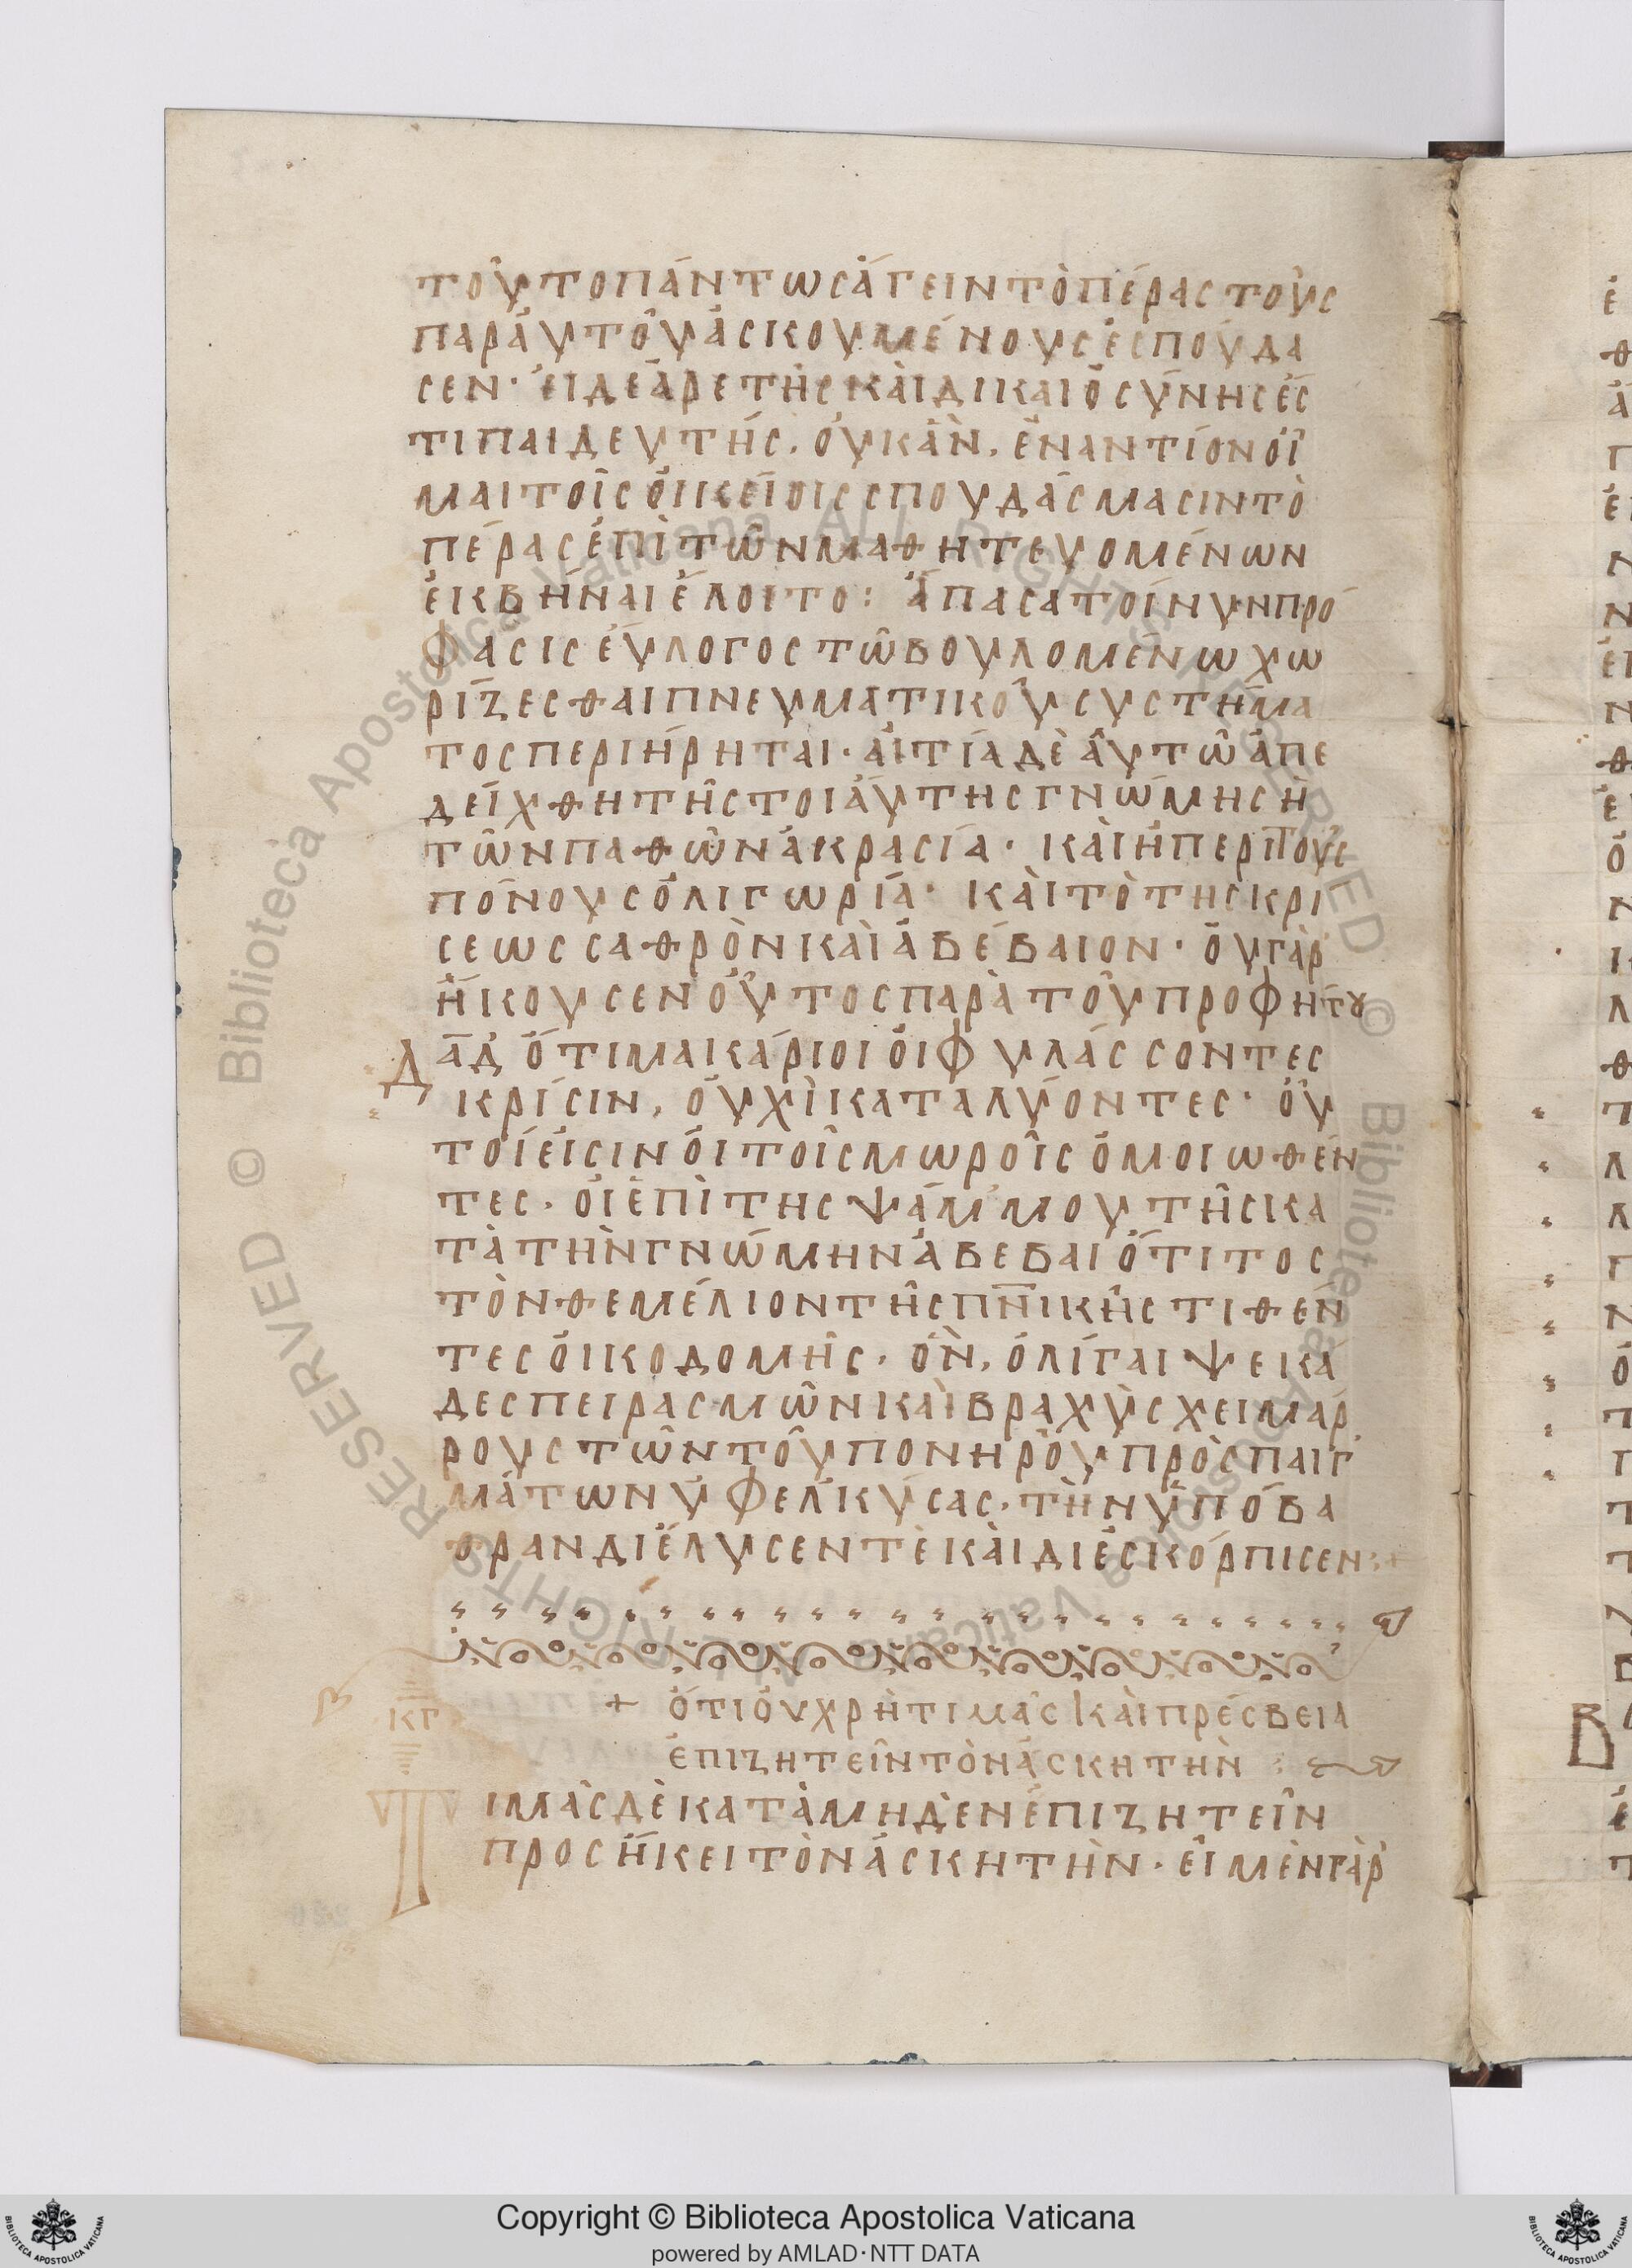 τοῦτο πάντως ἄγειν τὸ πέρας τοὺς
παρ᾽ ἀυτοῦ ἀσκουμένους ἐσπούδα
σεν· ἐι δε ἀρετῆς κὰι δικαιοσύνης ἐς
τι παιδευτής, οὐκ ἂν, ἐναντίον οἶ
μαι τοῖς ὀικείοις σπουδάσμασιν τὸ
πέρας ἐπὶ τῶν μαθητευομένων
ἐκβῆναι ἕλοιτο: ἅπασα τοίνυν πρό
φασις ἔυλογος τῶ βουλομένω χω
ρίζεσθαι πνευματικοῦ συστήμα
τος περιήρηται· ἀιτία δὲ ἀυτῶ ἀπε
δείχθη τῆς τοιάυτης γνώμης ἡ
τῶν παθῶν ἀκρασία· κὰι ἡ περι τοὺς
πόνους ὀλιγωρία· κὰι τὸ της κρι
σεως σαθρὸν καὶ ἀβέβαιον· ὀυ γὰρ
ἤκουσεν οὗτος παρὰ τοῦ προφήτȣ
δα̅δ̅ ὅτι μακάριοι ὁι φυλάσσοντες
κρίσιν, ὀυχὶ καταλύοντες· ὁῦ
τοί ἐισιν ὁι τοῖς μωροῖς ὁμοιωθέν
τες· ὁι ἐπὶ της ψάμμου τῆς κα
τὰ τὴν γνώμην ἀβεβαιότιτος
τὸν θεμέλιον τῆς π̅ν̅ικῆς τιθέν
τες ὀικοδομῆς· ὃν, ὀλίγαι ψεκά
δες πειρασμῶν καὶ βραχὺς χειμάρ
ρους τῶν τοῦ πονηροῦ προσπαιγ
μάτων ὑφελκύσας, τὴν ὑπόβα
θραν διέλυσεν τὲ κὰι διεσκόρπισεν:+
κγ
+ ὅτι ὀυ χρὴ τιμὰς κὰι πρέσβεια
ἐπιζητεῖν τὸν ἀσκητὴν :
Τιμὰς δὲ κατὰ μηδὲν ἐπιζητεῖν
προσήκει τὸν ἀσκητὴν· ἐι μὲν γὰρ
© Biblioteca Apostolica Vaticana ALL RIGHTS RESERVED
Copyright © Biblioteca Apostolica Vaticana
powered by AMLAD·NTT DATA